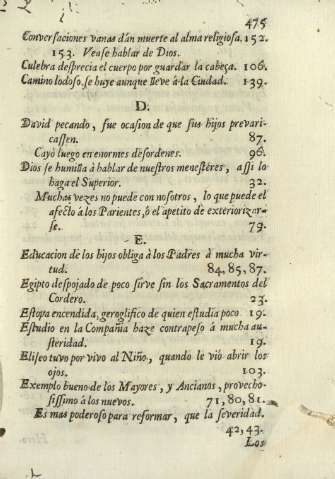 475
Conversaciones vanas dán muerte al alma religiosa. 152.
153. Vease hablar de Dios.
Culebra desprecia el cuerpo por guardar la cabeça. 106.
Camino lodoso, se huye aunque lleve à la Ciudad. 139.
D.
David pecando, fue ocasion de que sus hijos prevari-
cassen. 87.
Cayò luego en enormes desordenes. 96.
Dios se humilla à hablar de nuestros menestères, assi lo
haga el Superior. 32.
Muchas vezes no puede con nosotros, lo que puede el
afecto à los Parientes, ó el apetito de exteriorizar-
se. 79.
E.
Educacion de los hijos obliga à los Padres à mucha vir-
tud. 84, 85, 87.
Egipto despojado de poco sirve sin los Sacramentos del
Cordero. 23.
Estopa encendida, geroglifico de quien estudia poco. 19.
Estudio en la Compañia haze contrapeso á mucha au-
steridad. 19.
Eliseo tuvo por vivo al Niño, quando le viò abrir los
ojos. 103.
Exemplo bueno de los Mayores, y Ancianos, provecho-
sissimo à los nuevos. 71, 80, 81.
Es mas poderoso para reformar, que la severidad.
42, 43.
Los